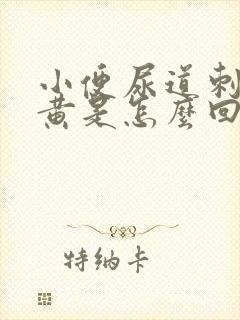 小便尿道刺
黄是怎麼回
特纳卡